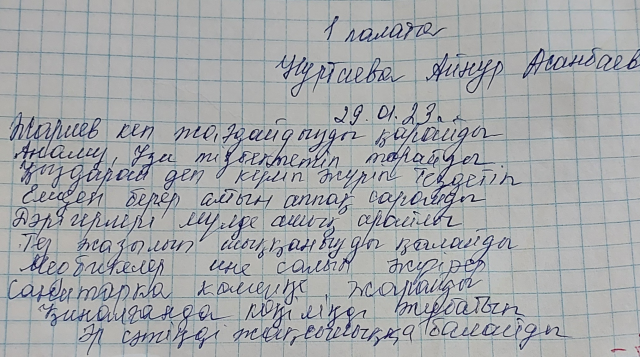 1 палата
Нуртаева Айнур Асанбаев
29.01.23г.
Жариев кеп жағдайдыңды қарайды
Анализ, Узи тізбектетіп тарайды
Қыздарай деп күліп жүріп тездетіп
Емдеп берер алтын аппақ сарайды
Дәрігерлері мүлде ашық арайлы
Тез жазылып шыққаныңды қалайды
Медбикелер ине салып жүгірер
Санитарка көмекке жарайды
Қиналғанда көңіліңді жұбатып
Әр сәтіңді жақсылыққа балайды